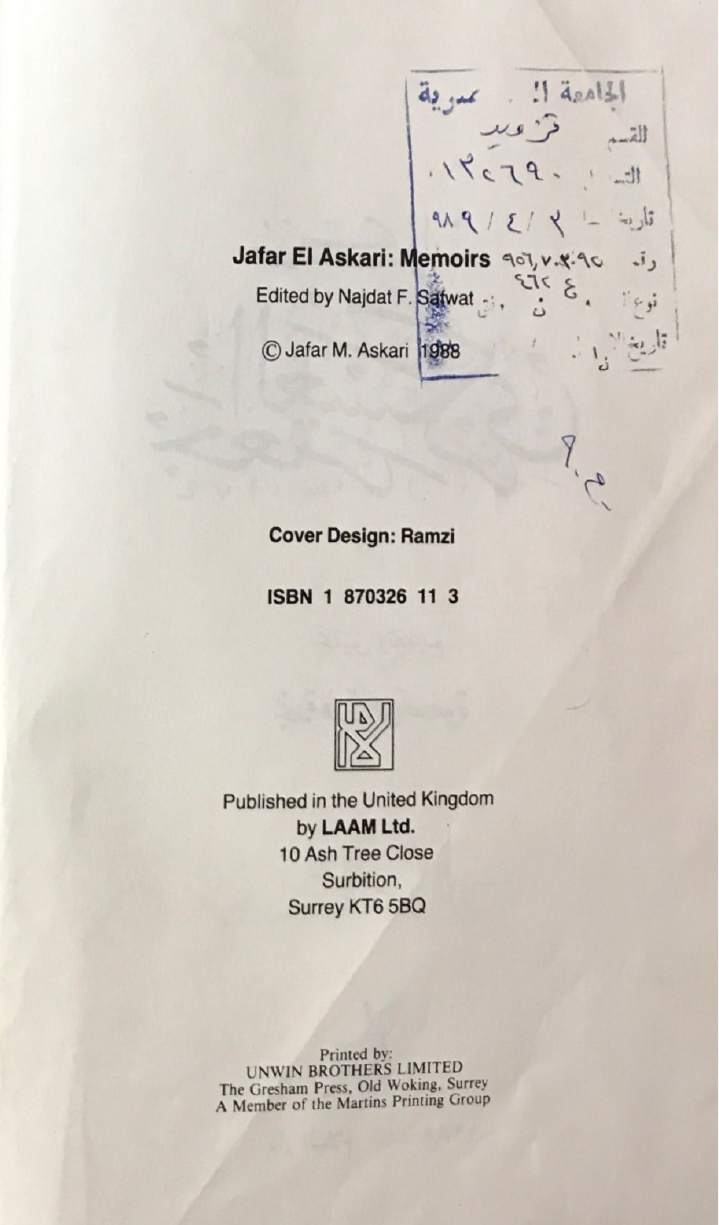 القسم تزويد
١٣٢٦٩٠
تاريخ ٩٨٩/٤/٢
Jafar El Askari: Memoirs
Edited by Najdat F. Safwat
© Jafar M. Askari 1988
Cover Design: Ramzi
ISBN 1 870326 11 3
Published in the United Kingdom
by LAAM Ltd.
10 Ash Tree Close
Surbition,
Surrey KT6 5BQ
Printed by:
UNWIN BROTHERS LIMITED
The Gresham Press, Old Woking, Surrey
A Member of the Martins Printing Group